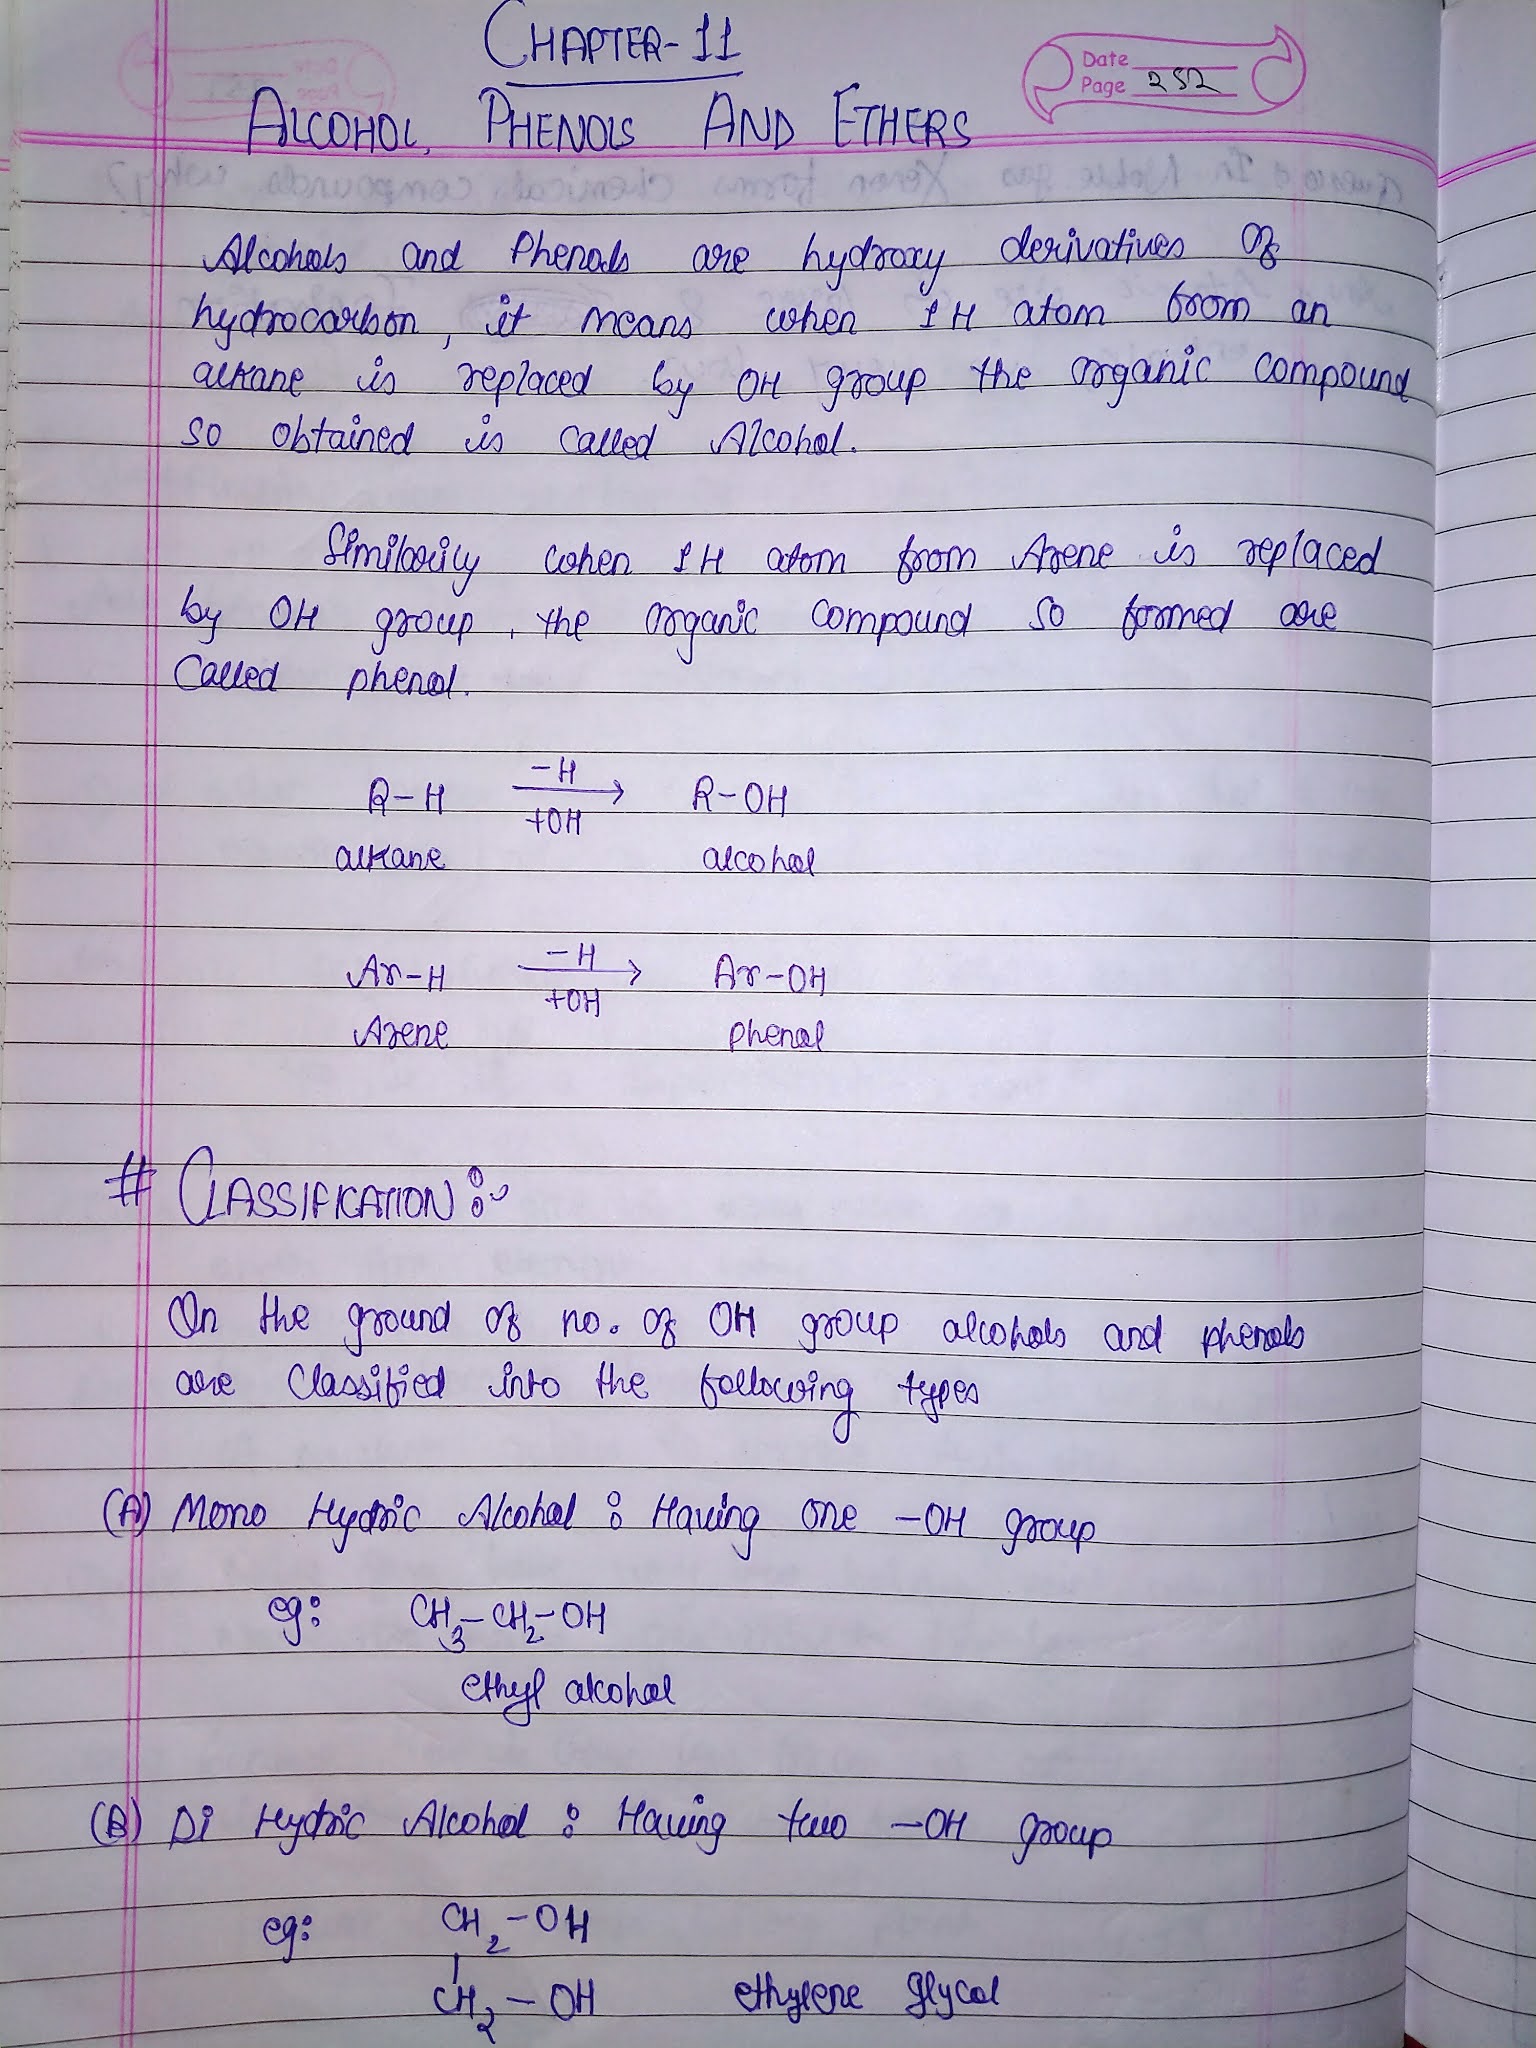 CHAPTER-11
Date
Page 252
ALCOHOL, PHENOLS AND ETHERS
Alcohols and Phenols are hydroxy derivatives of
hydrocarbon, it means when 1 H atom from an
alkane is replaced by OH group the organic compound
so obtained is called Alcohol.
Similarily when 1 H atom from Arene is replaced
by OH group, the organic compound so formed are
Called phenol.
R-H -H→ +OH R-OH
alkane alcohol
Ar-H -H→ +OH Ar-OH
Arene phenol
# CLASSIFICATION :-
On the ground of no. of OH group alcohols and phenols
are Classified into the following types
(A) Mono Hydric Alcohol : Having one -OH group
eg: CH₃-CH₂-OH
ethyl alcohol
(B) Di Hydric Alcohol : Having two -OH group
eg: CH₂-OH
|
CH₂-OH ethylene glycol